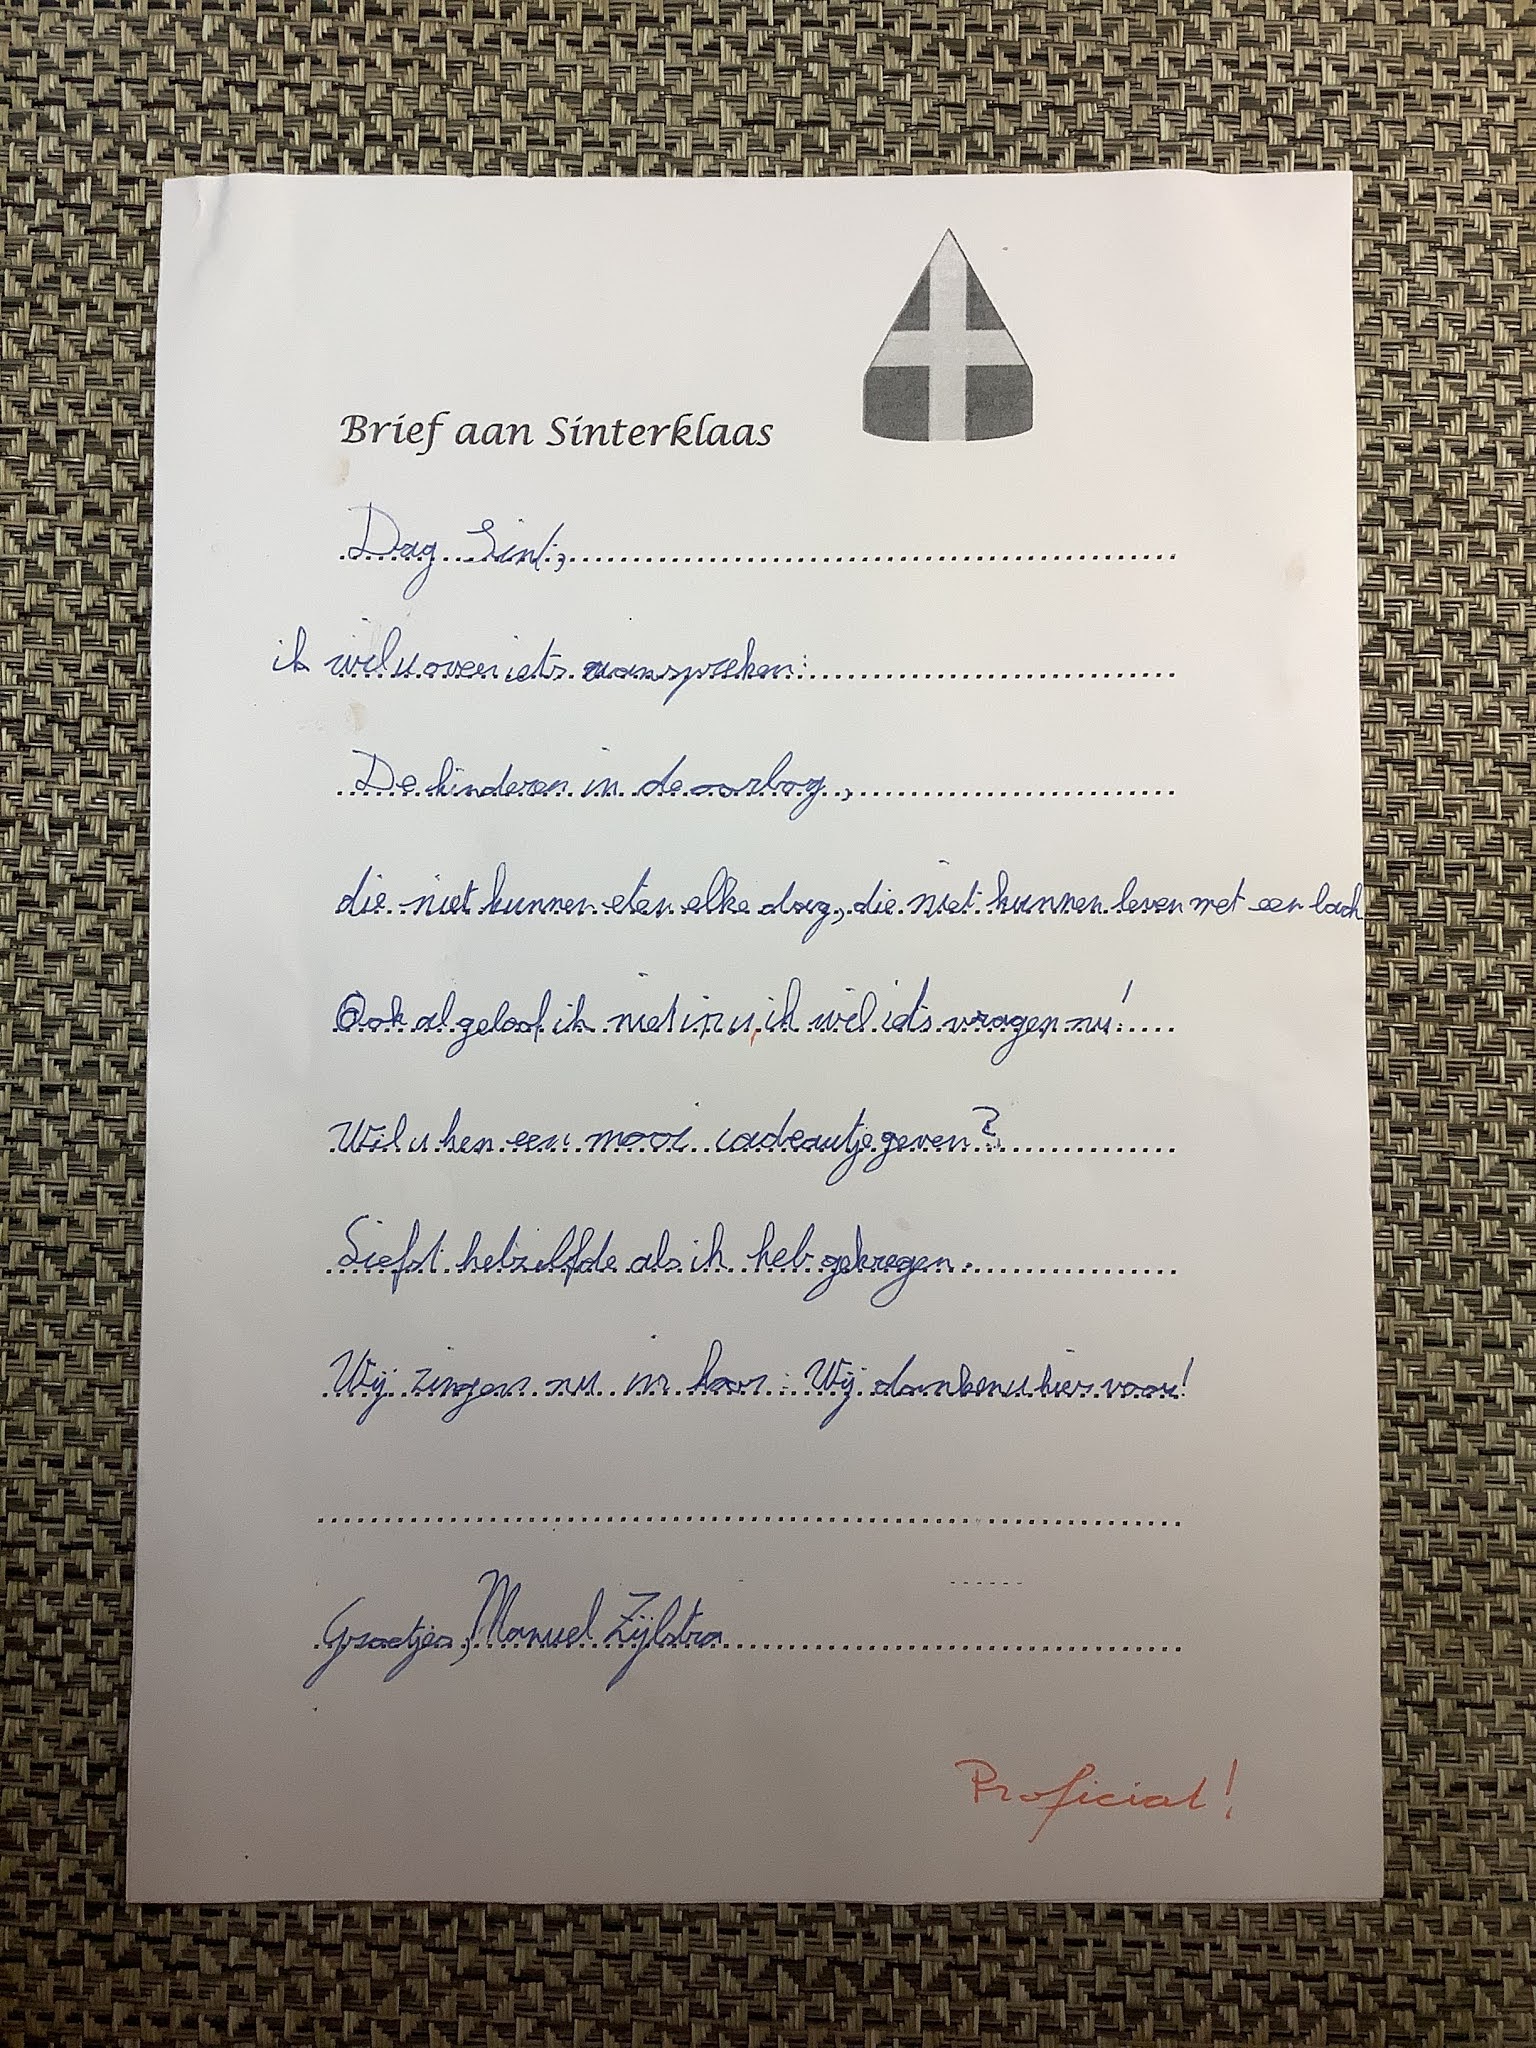 Brief aan Sinterklaas
Dag Sint,
ik wil u over iets aanspreken:
De kinderen in de oorlog,
die niet kunnen eten elke dag, die niet kunnen leven met een lach
Ook al geloof ik niet in u, ik wil iets vragen nu!
Wil u hen een mooi cadeautje geven?
Liefst hetzelfde als ik heb gekregen.
Wij zingen nu in koor: Wij danken u hier voor!
Groetjes, Manuel Zijlstra
Proficiat!